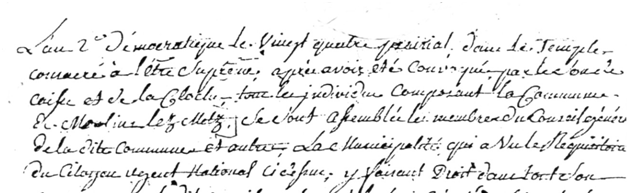 L'an 2e Démocratique le Vingt quatre prairial, dans le Temple
consacré à l'être Suprême, après avoir été convoqué par le son de la
caisse et de la Cloche tous les individus composant la Commune
de Moulins lez Metz, se sont assemblé les membres du Conseil général
de la dite Commune et autres, La Municipalité qui a Vu le Réquisitoire
du Citoyen agent National ci dessus, y faisant Droit dans tout son